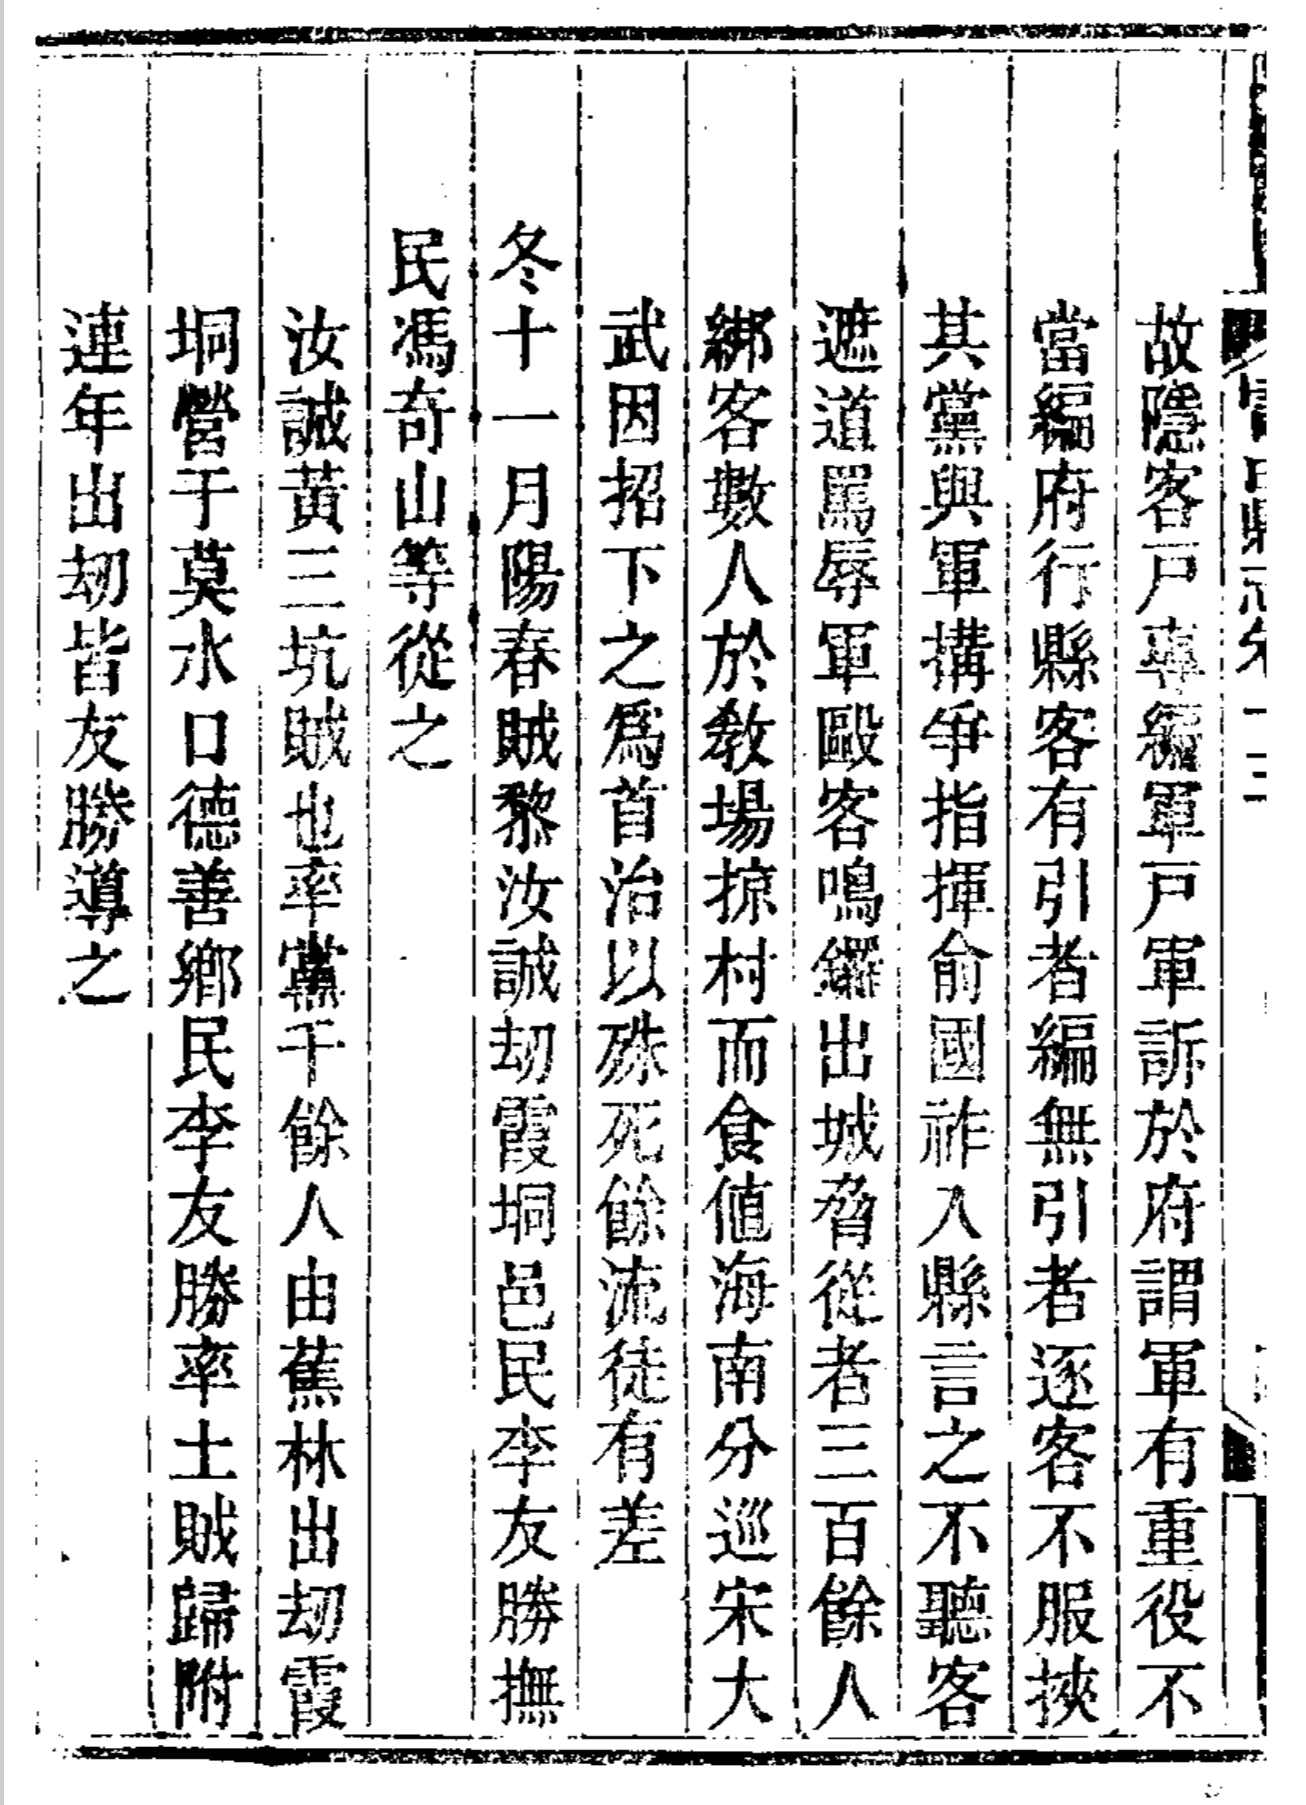 故隱客戸專編軍戸軍訴於府謂軍有重役不
當編府行縣客有引者編無引者逐客不服挾
其黨與軍搆爭指揮俞國祚入縣言之不聽客
遮道罵辱軍毆客鳴鑼出城脅從者三百餘人
綁客數人於教場掠村而食値海南分巡宋大
武因招下之爲首治以殊死餘流徒有差
冬十一月陽春賊黎汝誠刼霞垌邑民李友勝撫
民馮奇山等從之
汝誠黃三坑賊也率黨千餘人由蕉林出刼霞
垌營于莫水口德善鄉民李友勝率土賊歸附
連年出刼皆友勝導之